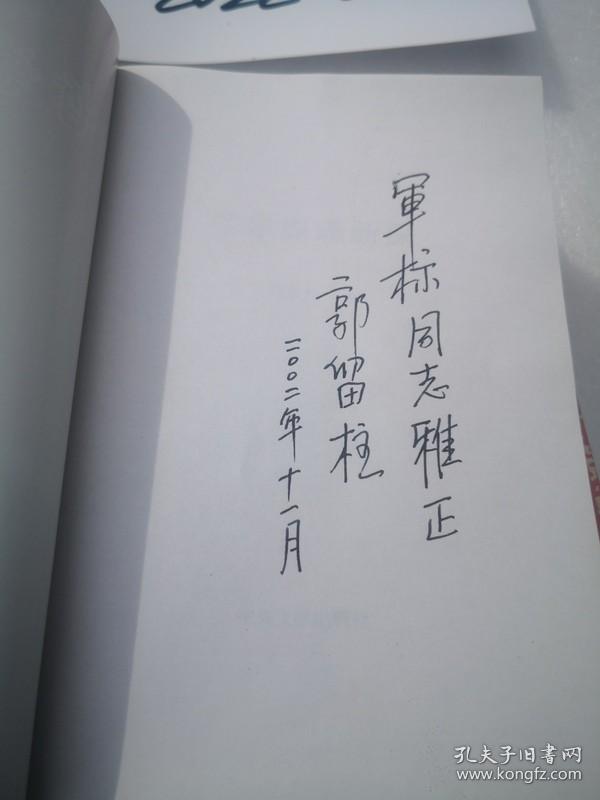 軍标同志雅正
郭留柱
二〇〇二年十一月
孔夫子旧書网
www.kongfz.com